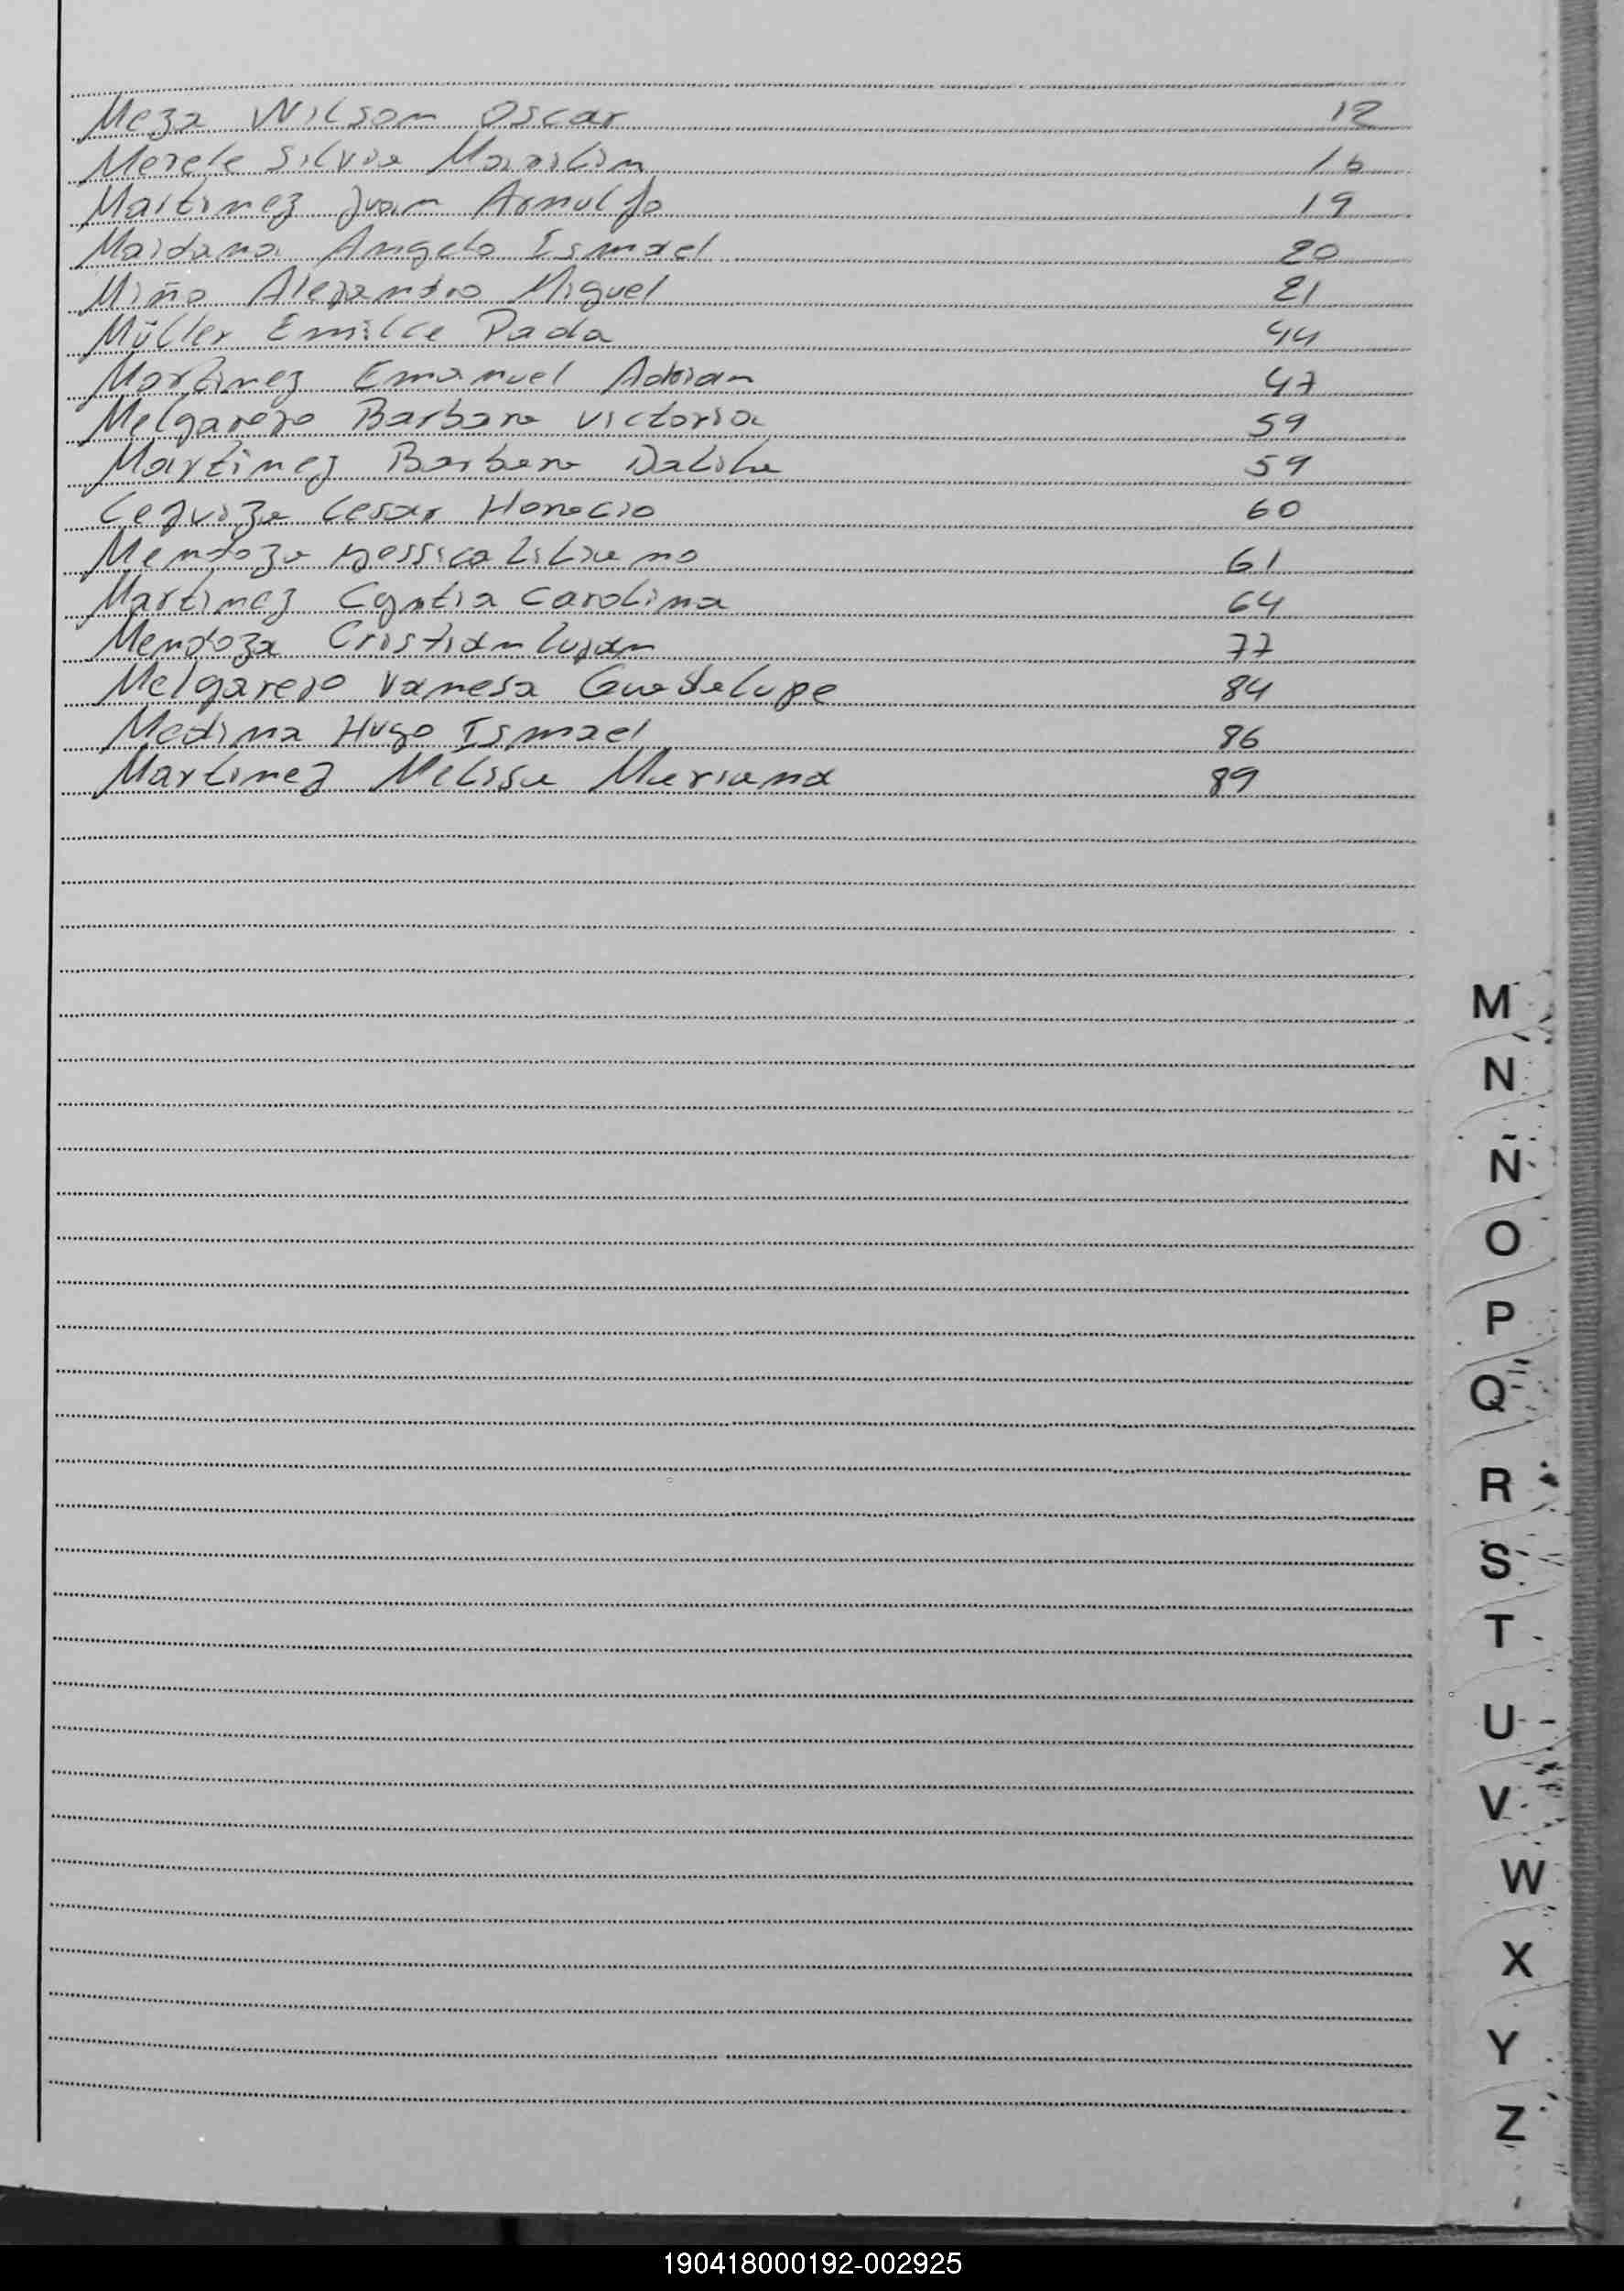 Meza Wilson Oscar 12
Merele Silvia Marilin 16
Martinez Juan Arnulfo 19
Maidana Angelo Ismael 20
Miño Alejandro Miguel 21
Müller Emilce 44
Martinez Emanuel Adrian 47
Melgarejo Barbara Victoria 59
Martinez Barbara Dalila 59
Cesar Horacio 60
Mendoza Yessica Liliana 61
Martinez Cyntia Carolina 64
Mendoza Cristian Lujan 77
Melgarejo Vanesa Guadelupe 84
Medina Hugo Ismael 86
Martinez Melisa Mariana 89
M
N
Ñ
O
P
Q
R
S
T
U
V
W
X
Y
Z
190418000192-002925